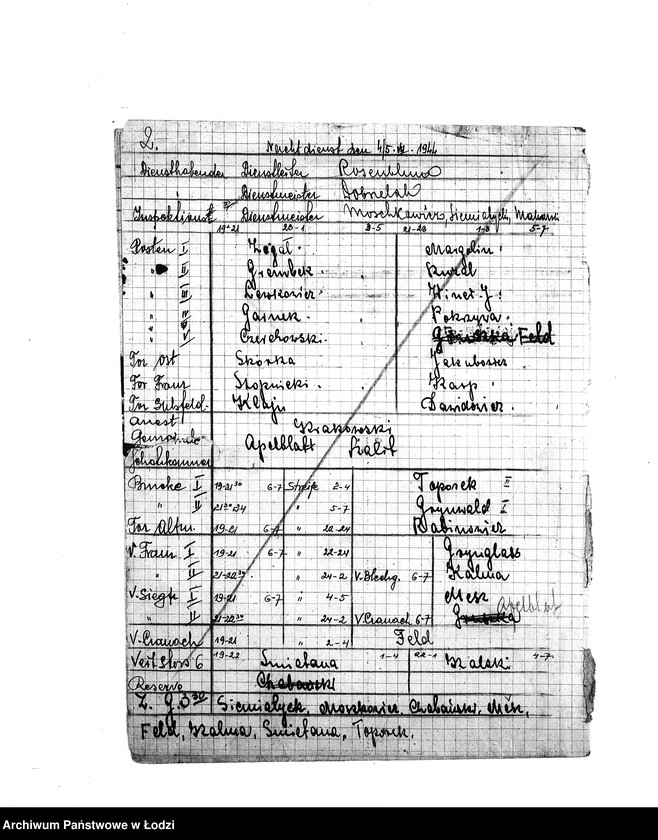 2.
Nachtdienst den 4/5. VII. 1944
Diensthabender Dienstleiter Rosenblum
" Dienstmeister Dobrelak
Inspektionst Dienstmeister Moschkowicz, Siemiatycki,
19-21 23-1 3-5 21-23 1-3 5-7
Posten I Zegal. Margolin.
" II Grembek. Kurdl
" III Lewkowicz. Winer J.
" IV Garnek. Pokrzywa.
" V Czerchowski. Feld
Tor Ost Skorka Jakubowicz
Tor Franz Stopnicki. Karp
Tor Sulzfeld. Klajn Dawidowicz.
Arrest Krakowski
Gemeinde Apelblatt Szalit
Schatzkammer
Brucke I 19-21³⁰ 6-7 Streife 2-4 Toporek II
" II 21³⁰-24 " 5-7 Grynwald I
Tor Altm. 19-21 6-7 " 22-24 Rabinowicz
V. Franz I 19-21 6-7 " 22-24 Grynglass
" II 21-22³⁰ " 24-2 V. Blechg. 6-7 Kalma
V. Siegfr I 19-21 6-7 " 4-5 Mesk
" II 21-22³⁰ " 24-2 V. Cranach 6-7 Apelblat
V. Cranach 19-21 " 2-4 Feld
Veit Stoss 6 19-22 Smietana 1-4 22-1 Kalski 4-7
Reserve Chabanski
Z. G. 3³⁰ Siemiatyck, Moszkowicz. Chabański, Mesk,
Feld, Kalma, Smietana, Toporek.
Archiwum Państwowe w Łodzi